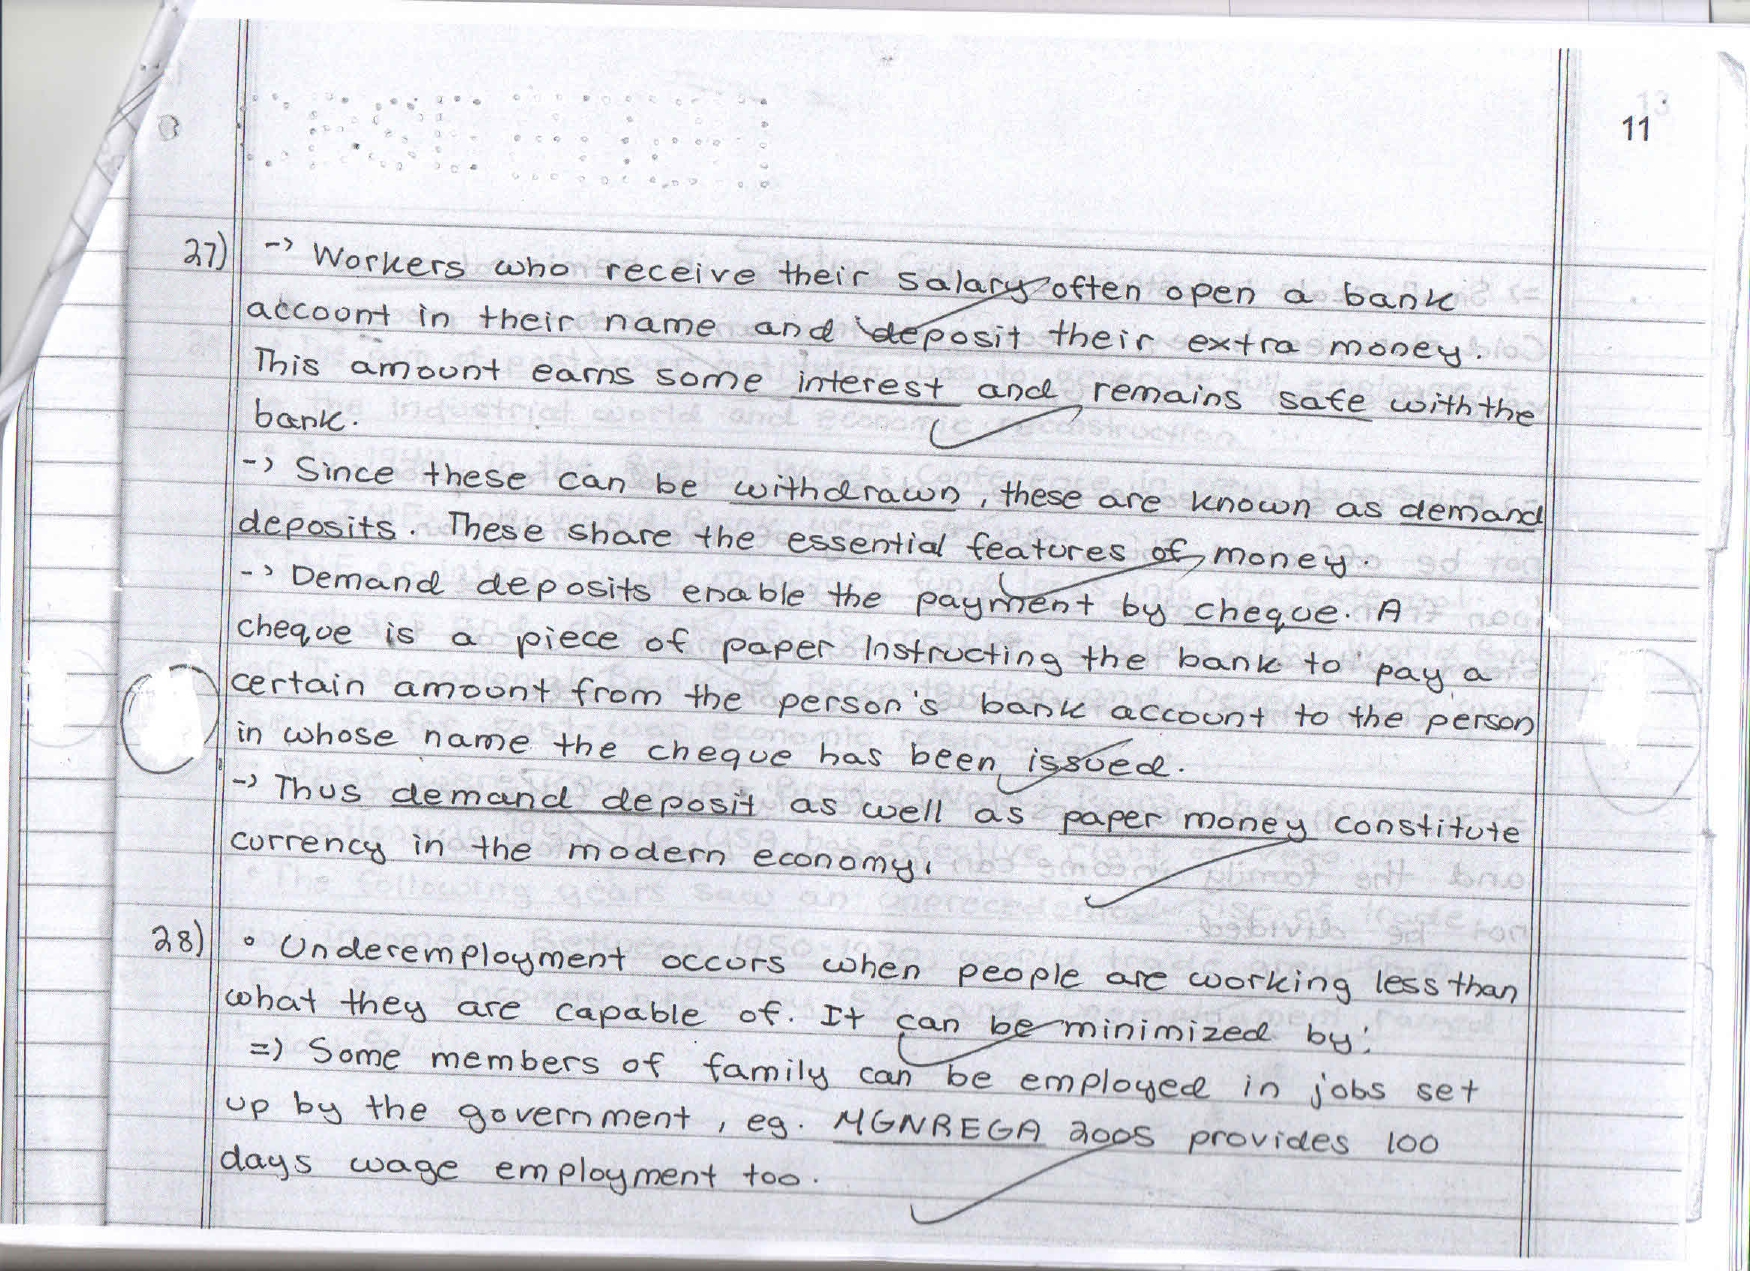 11
27) -> Workers who receive their salary often open a bank
account in their name and deposit their extra money.
This amount earns some interest and remains safe with the
bank.
-> Since these can be withdrawn, these are known as demand
deposits. These share the essential features of money.
-> Demand deposits enable the payment by cheque. A
cheque is a piece of paper Instructing the bank to pay a
certain amount from the person's bank account to the person
in whose name the cheque has been issued.
-> Thus demand deposit as well as paper money constitute
currency in the modern economy.
28) • Underemployment occurs when people are working less than
what they are capable of. It can be minimized by:
=) Some members of family can be employed in jobs set
up by the government, eg. MGNREGA 2005 provides 100
days wage employment too.